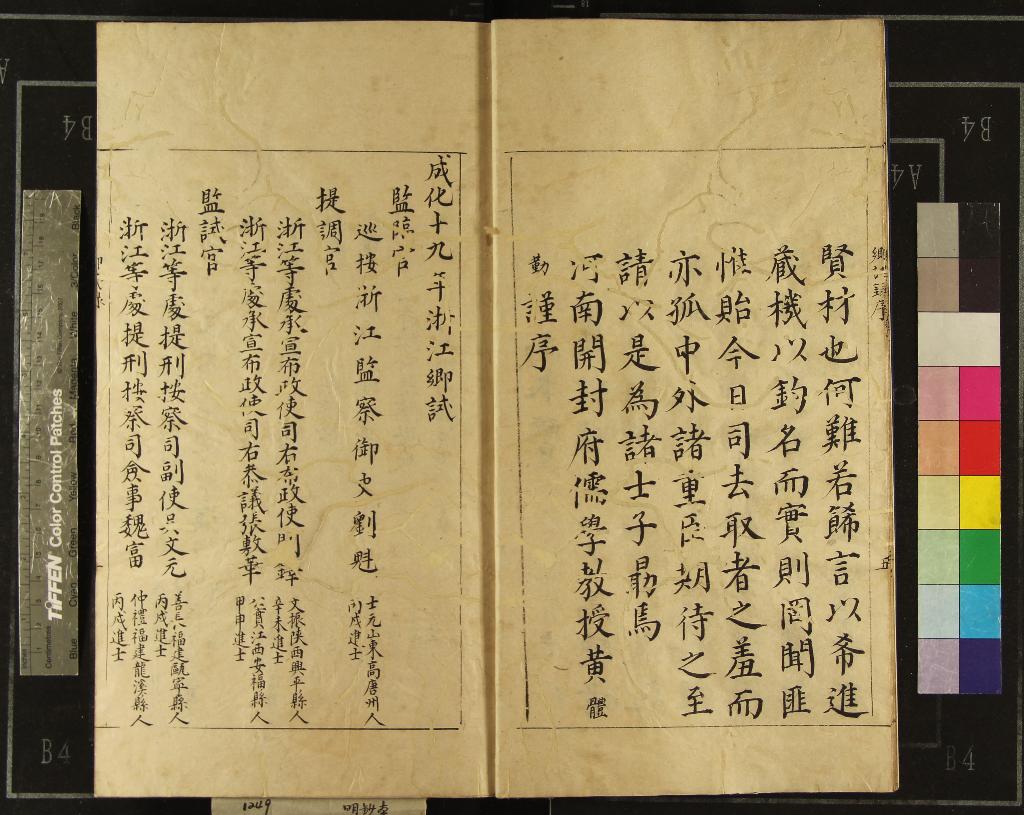 賢材也何難若餙言以希進
蔵機以釣名而實則罔聞匪
惟貽今日司去取者之羞而
亦孤中外諸重臣期待之至
請以是為諸士子勗焉
河南開封府儒學教授黄體
勤謹序
成化十九年浙江鄉試
監臨官
巡按浙江監察御史劉魁 士元山東高唐州人 丙戌進士
提調官
浙江等處承宣布政使司右叅政使 文振陝西興平縣人 辛未進士
浙江等處承宣布政使司右叅議張敷華 公實江西安福縣人 甲申進士
監試官
浙江等處提刑按察司副使吴文元 善長福建甌寧縣人 丙戌進士
浙江等處提刑按察司僉事魏富 仲禮福建龍溪縣人 丙戌進士
TIFFEN Color Control Patches
Centimetres
Blue
Cyan
Green
Yellow
Red
Magenta
White
3/Color
Black
B4
B4
A4
B4
B4
1249
明鈔本